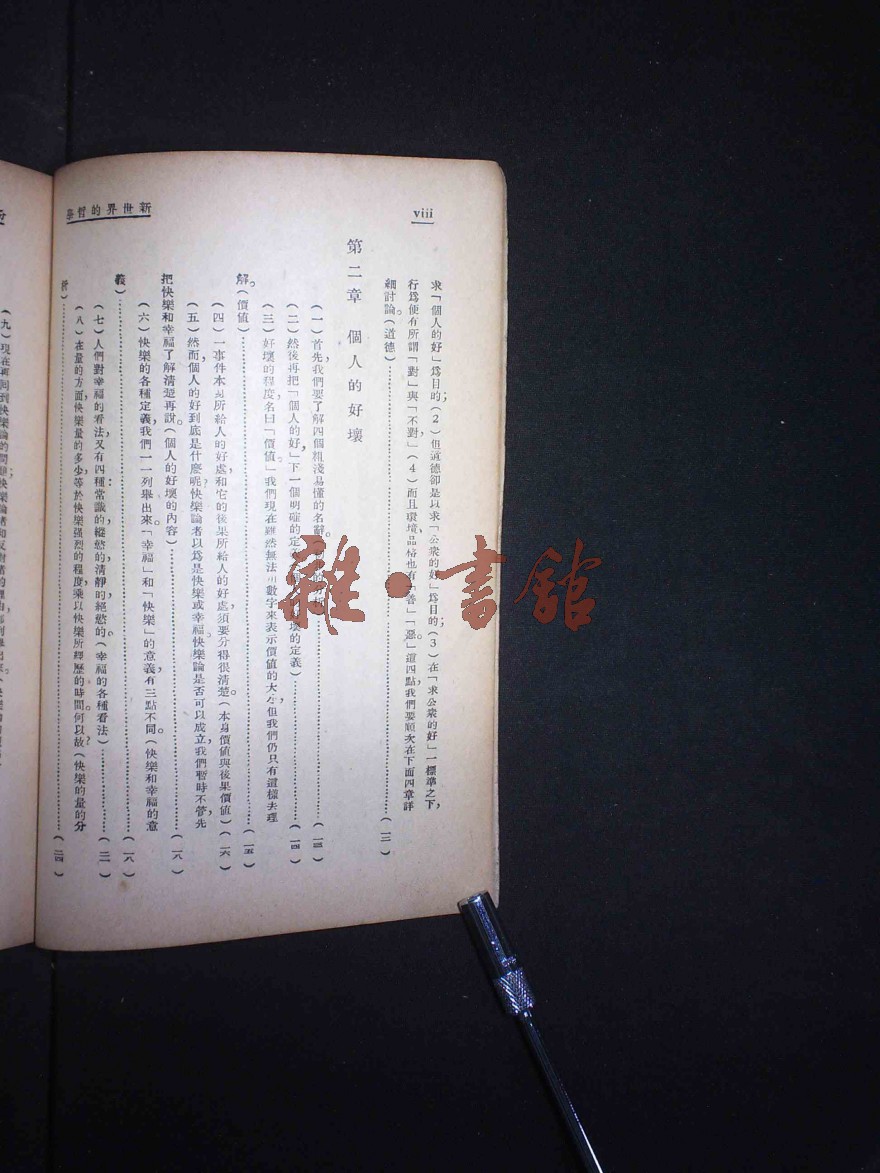 新世界的哲學
viii
求「個人的好」爲目的；(2)但道德卻是以求「公衆的好」爲目的；(3)在「求公衆的好」一標準之下，
行爲便有所謂「對」與「不對」，(4)而且環境、品格也有「善」「惡」。這四點我們要順次在下面四章詳
細討論。(道德)……(一三)
第二章 個人的好壞
(一)首先，我們要了解四個粗淺易懂的名辭。……(一四)
(二)然後再把「個人的好」，下一個明確的定義。壞的定義)……(一四)
(三)好壞的程度名曰「價值」。我們現在雖然無法用數字來表示價值的大小，但我們仍只有這樣去理
解。(價值)……(一五)
(四)一事件本身所給人的好處和它的後果所給人的好處，須要分得很清楚。(本身價值與後果價值)(一六)
(五)然而，個人的好到底是什麼呢？快樂論者以爲是快樂或幸福。快樂論是否可以成立，我們暫時不管，先
把快樂和幸福了解清楚再說。(個人的好壞的內容)……(一八)
(六)快樂的各種定義，我們一一列舉出來。「幸福」和「快樂」的意義，有三點不同。(快樂和幸福的意
義)……(一八)
(七)人們對幸福的看法又有四種：常識的，縱慾的，清靜的，絕慾的。(幸福的各種看法)……(二一)
(八)在量的方面，快樂量的多少，等於快樂强烈的程度乘以快樂所經歷的時間。何以故？(快樂的量的分
析)……(二四)
(九)現在再回到快樂論的問題
雜·書館